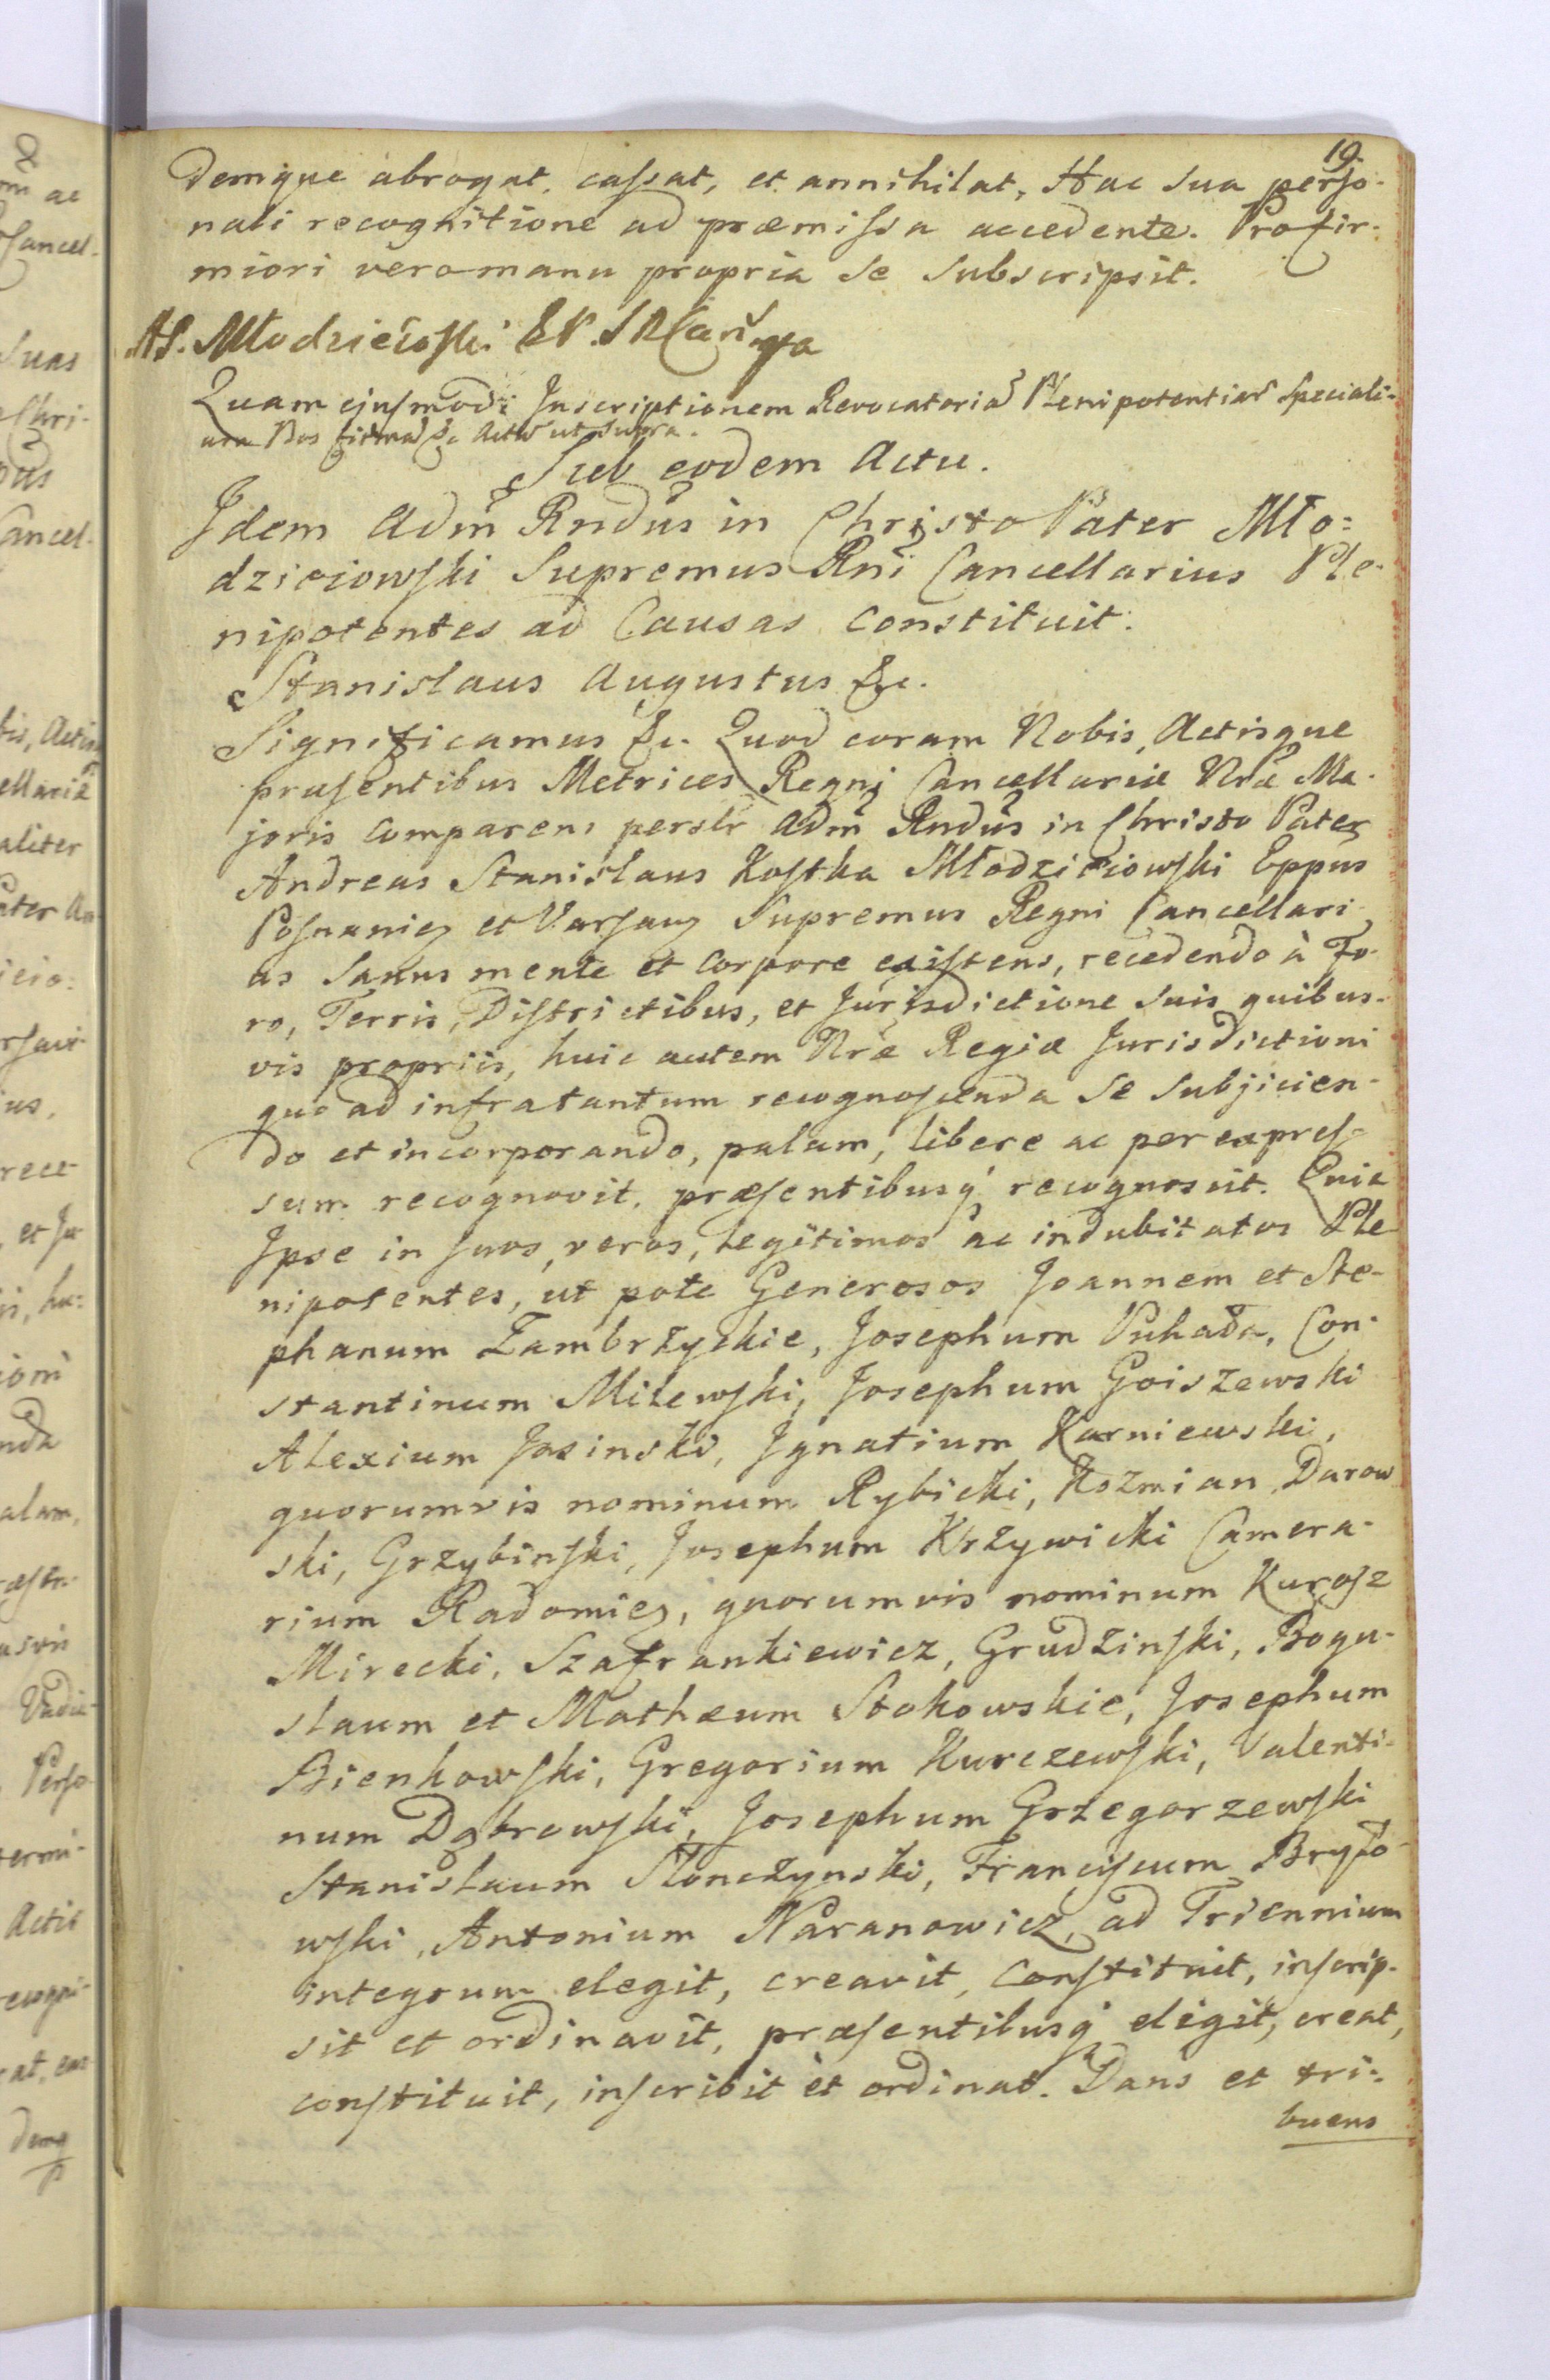 19.
demque abrogat, cassat, et annihilat, Hac sua perso-
nali recognitione ad præmissa accedente. Pro fir-
miori vero manu propria se subscripsit.
AS. Młodzieiowski EP.
Quam ejusmodi Inscriptionem Revocatoria Plenipotentiar Speciali-
um Nos ut Supra.
Sub eodem Actu.
Idem Adm Rndus in Christo Pater Mło=
dzieiowski Supremus Rni Cancellarius Ple-
nipotentes ad Causas Constituit.
Stanislaus Augustus &c.
Significamus &c. Quod coram Nobis, Actisque
præsentibus Metrices Regni Cancellariæ Nræ Ma-
joris comparens perslr Adm Rndus in Christo Pater
Andreas Stanislaus Kostka Młodzieiowski Eppus
Posnanień et Varsavień Supremus Regni Cancellari-
us Sanus mente et Corpore existens, recedendo à Fo-
ro, Terris, Districtibus, et Jurisdictione Suis quibus-
vis propriis, huic autem Nræ Regiæ Jurisdictioni
quo ad infra tantum recognoscenda Se Subjicien-
do et incorporando, palam, libere ac per expres-
sum recognovit, præsentibusq recognoscit. Quia
Ipse in Suos, veros, legitimos ac indubitatos Ple
nipotentes, ut pote Generosos Joannem et Ste-
phanum Zambrzyckie, Josephum Puhała, Con-
stantinum Milewski, Josephum Goiszewski
Alexium Jasinski, Ignatium Karniewski,
quorumvis nominum Rybicki, Kozmian, Darow
ski, Grzybinski, Josephum Krzywicki Camera-
rium Radomień, quorumvis nominum Kurosz
Mirecki, Szafrankiewicz, Grudzinski, Bogu-
slaum et Mathæum Stokowskie, Josephum
Bienkowski, Gregorium Kurczewski, Valenti-
num Dąbrowski, Josephum Grzegorzewski
Stanislaum Słonczynski, Franciscum Brysó
wski, Antonium Naranowicz, ad Triennium
integrum elegit, creavit, Constituit, inscrip-
sit et ordinavit, præsentibusq eligit, creat,
constituit, inscribit et ordinat. Dans et tri-
buens